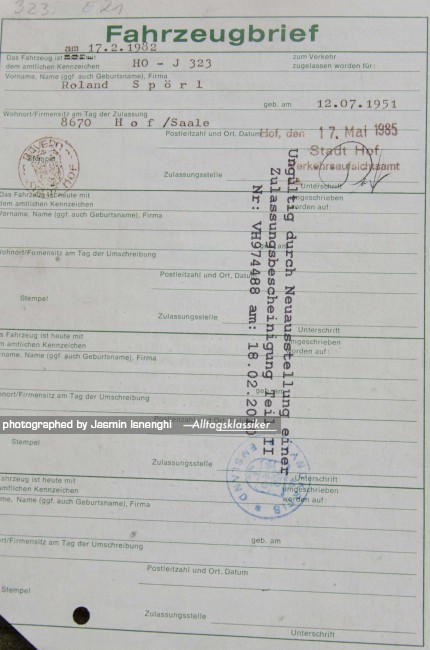 323. E21
Fahrzeugbrief
am 17.2.1982
Das Fahrzeug ist
zum Verkehr
dem amtlichen Kennzeichen HO - J 323 zugelassen worden für:
Vorname, Name (ggf. auch Geburtsname), Firma
Roland Spörl
geb. am 12.07.1951
Wohnort/Firmensitz am Tag der Zulassung
8670 Hof/Saale
Postleitzahl und Ort, Datum Hof, den 17. Mai 1985
Stadt Hof
Verkehrsaufsichtsamt
BAYERN
Stempel
STADT HOF
Zulassungsstelle
Unterschrift
Das Fahrzeug ist heute mit
umgeschrieben
dem amtlichen Kennzeichen
worden auf:
Vorname, Name (ggf. auch Geburtsname), Firma
Wohnort/Firmensitz am Tag der Umschreibung
Postleitzahl und Ort, Datum
Stempel
Zulassungsstelle
Unterschrift
s Fahrzeug ist heute mit
umgeschrieben
m amtlichen Kennzeichen
worden auf:
rname, Name (ggf. auch Geburtsname), Firma
ohnort/Firmensitz am Tag der Umschreibung
Postleitzahl und Ort, Datum
photographed by Jasmin Isnenghi —Alltagsklassiker
Stempel
Zulassungsstelle
Unterschrift
ahrzeug ist heute mit
umgeschrieben
amtlichen Kennzeichen
worden auf:
me, Name (ggf. auch Geburtsname), Firma
geb. am
rt/Firmensitz am Tag der Umschreibung
Postleitzahl und Ort, Datum
Stempel
Zulassungsstelle
Unterschrift
Ungültig durch Neuausstellung einer
Zulassungsbescheinigung Teil II
Nr: VH974488 am: 18.02.20
EMSLAND